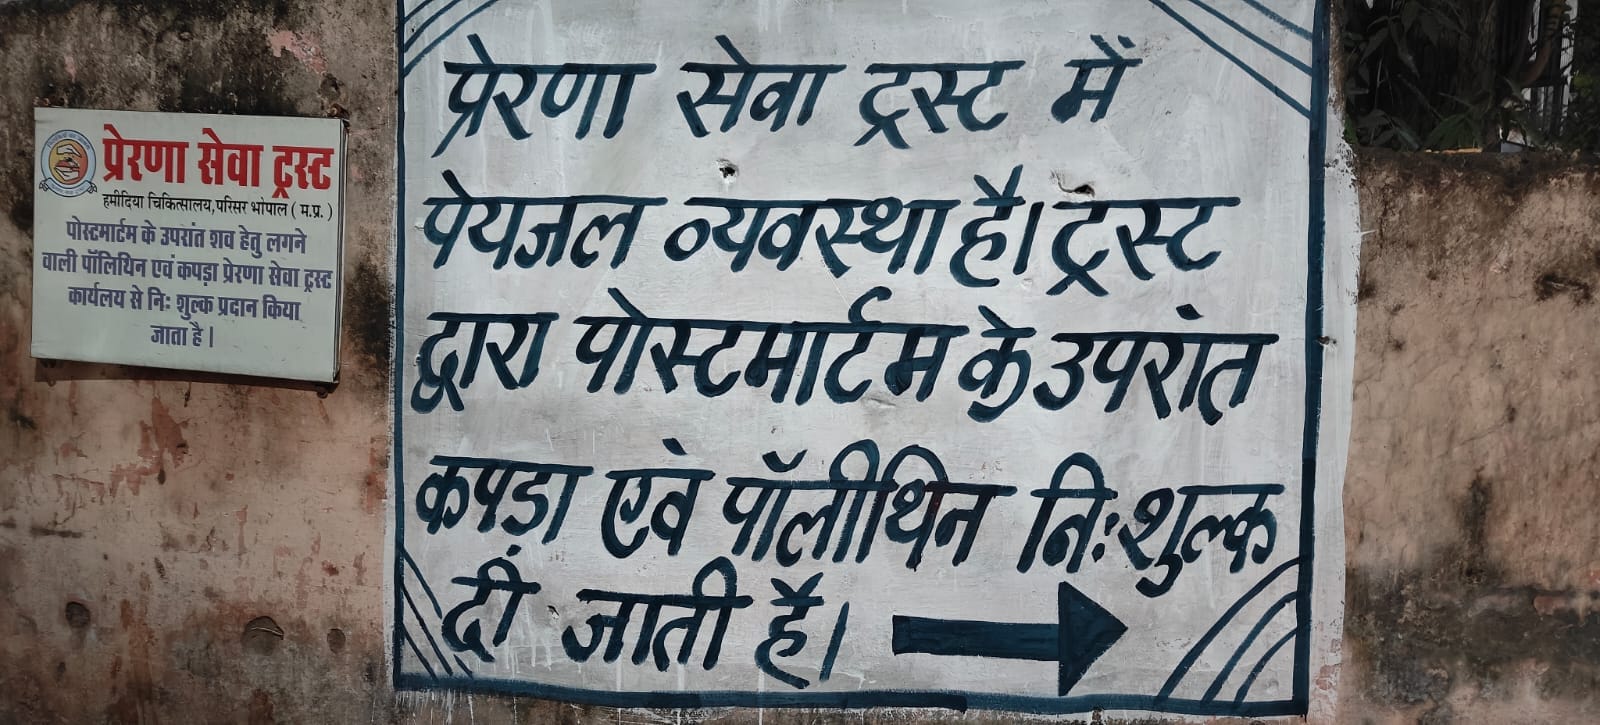 प्रेरणा सेवा ट्रस्ट
हमीदिया चिकित्सालय,परिसर भोपाल ( म.प्र. )
पोस्टमार्टम के उपरांत शव हेतु लगने
वाली पॉलिथिन एवं कपड़ा प्रेरणा सेवा ट्रस्ट
कार्यलय से निः शुल्क प्रदान किया
जाता है ।
प्रेरणा सेवा ट्रस्ट में
पेयजल व्यवस्था है। ट्रस्ट
द्वारा पोस्टमार्टम के उपरांत
कपडा एवं पॉलीथिन निःशुल्क
दीं जाती है।